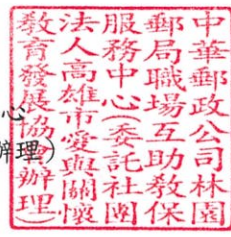 中華郵政公司林園
郵局職場互助教保
服務中心(委託社團
法人高雄市愛與關懷
教育發展協會辦理)
心
辦理)